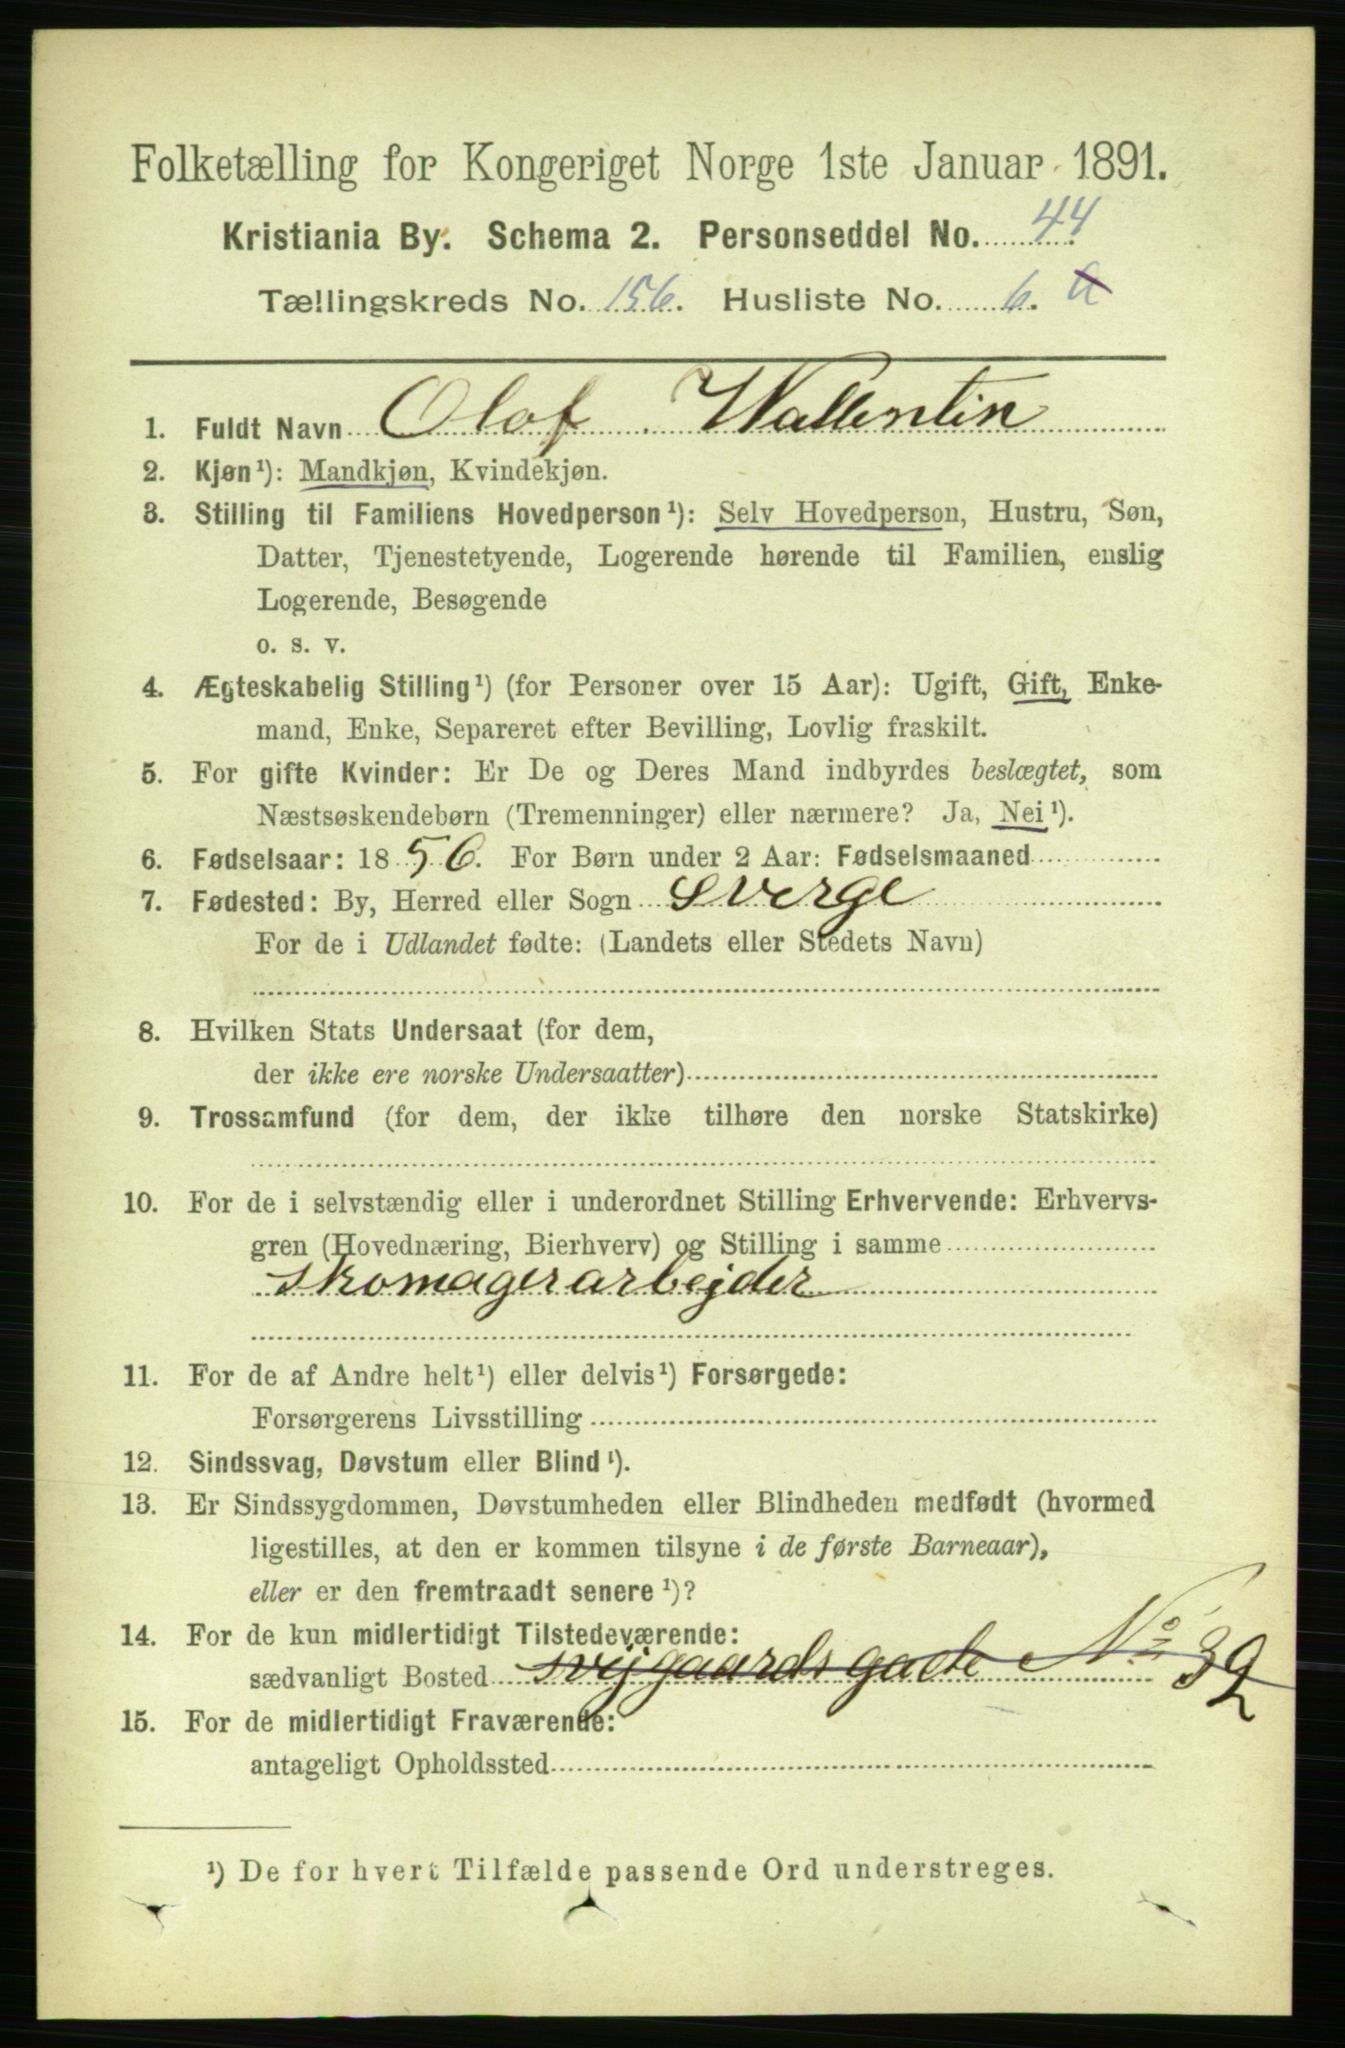 Folketælling for Kongeriget Norge 1ste Januar 1891.
Kristiania By. Schema 2. Personseddel No. 44
Tællingskreds No. 156. Husliste No. 6. a
1. Fuldt Navn Olof Wallentin
2. Kjøn¹): Mandkjøn, Kvindekjøn.
3. Stilling til Familiens Hovedperson¹): Selv Hovedperson, Hustru, Søn,
Datter, Tjenestetyende, Logerende hørende til Familien, enslig
Logerende, Besøgende
o. s. v.
4. Ægteskabelig Stilling¹) (for Personer over 15 Aar): Ugift, Gift, Enke-
mand, Enke, Separeret efter Bevilling, Lovlig fraskilt.
5. For gifte Kvinder: Er De og Deres Mand indbyrdes beslægtet, som
Næstsøskendebørn (Tremenninger) eller nærmere? Ja, Nei¹).
6. Fødselsaar: 1856. For Børn under 2 Aar: Fødselsmaaned
7. Fødested: By, Herred eller Sogn Sverge
For de i Udlandet fødte: (Landets eller Stedets Navn)
8. Hvilken Stats Undersaat (for dem,
der ikke ere norske Undersaatter)
9. Trossamfund (for dem, der ikke tilhøre den norske Statskirke)
10. For de i selvstændig eller i underordnet Stilling Erhvervende: Erhvervs-
gren (Hovednæring, Bierhverv) og Stilling i samme
Skomagerarbejder
11. For de af Andre helt¹) eller delvis¹) Forsørgede:
Forsørgerens Livsstilling
12. Sindssvag, Døvstum eller Blind¹).
13. Er Sindssygdommen, Døvstumheden eller Blindheden medfødt (hvormed
ligestilles, at den er kommen tilsyne i de første Barneaar),
eller er den fremtraadt senere¹)?
14. For de kun midlertidigt Tilstedeværende:
sædvanligt Bosted svijgaards gade No 32
15. For de midlertidigt Fraværende:
antageligt Opholdssted
¹) De for hvert Tilfælde passende Ord understreges.